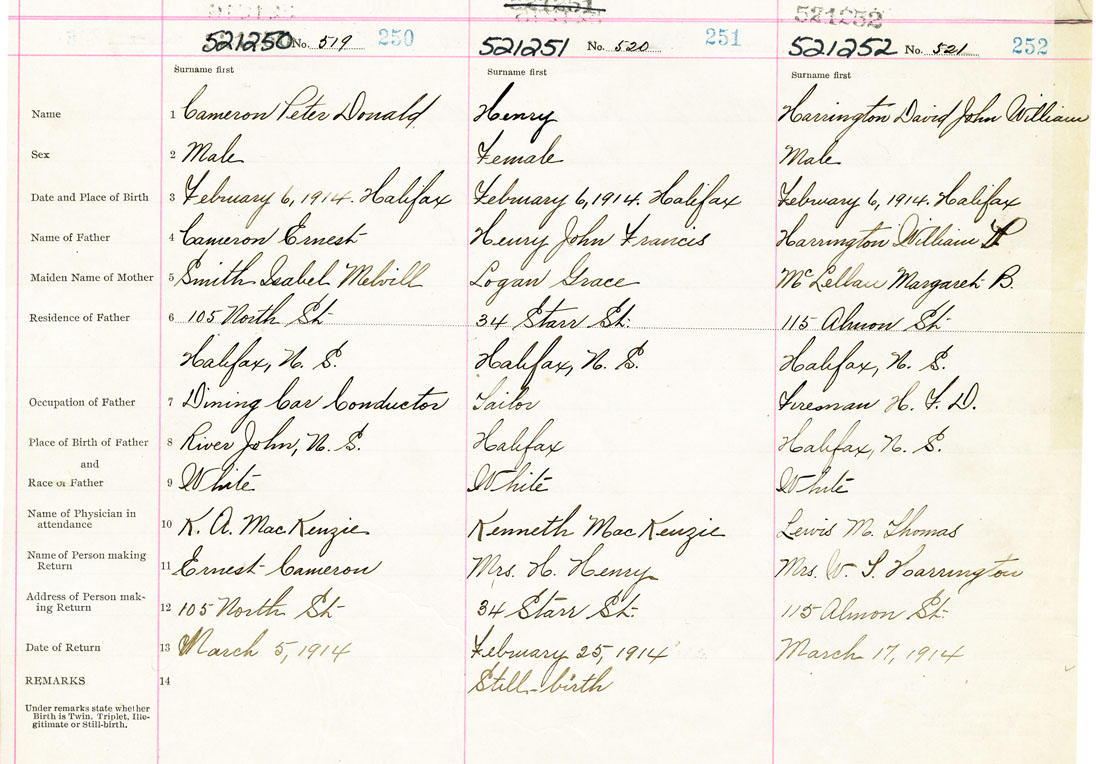 521251
521252
521250 No. 519 250 521251 No. 520 251 521252 No. 521 252
Surname first Surname first Surname first
Name 1 Cameron Peter Donald Henry Harrington David John William
Sex 2 Male Female Male
Date and Place of Birth 3 February 6, 1914. Halifax February 6, 1914. Halifax February 6, 1914. Halifax
Name of Father 4 Cameron Ernest Henry John Francis Harrington William
Maiden Name of Mother 5 Smith Isabel Melvill Logan Grace McLellan Margaret B.
Residence of Father 6 105 North St. 34 Starr St. 115 Almon St.
Halifax, N. S. Halifax, N. S. Halifax, N. S.
Occupation of Father 7 Dining Car Conductor Tailor Fireman H. F. D.
Place of Birth of Father 8 River John, N. S. Halifax Halifax, N. S.
and
Race of Father 9 White White White
Name of Physician in
attendance 10 K. A. MacKenzie Kenneth MacKenzie Lewis M. Thomas
Name of Person making
Return 11 Ernest Cameron Mrs. H. Henry Mrs. W. S. Harrington
Address of Person mak-
ing Return 12 105 North St. 34 Starr St. 115 Almon St.
Date of Return 13 March 5, 1914 February 25, 1914 March 17, 1914
REMARKS 14 Still-birth
Under remarks state whether
Birth is Twin, Triplet, Ille-
gitimate or Still-birth.